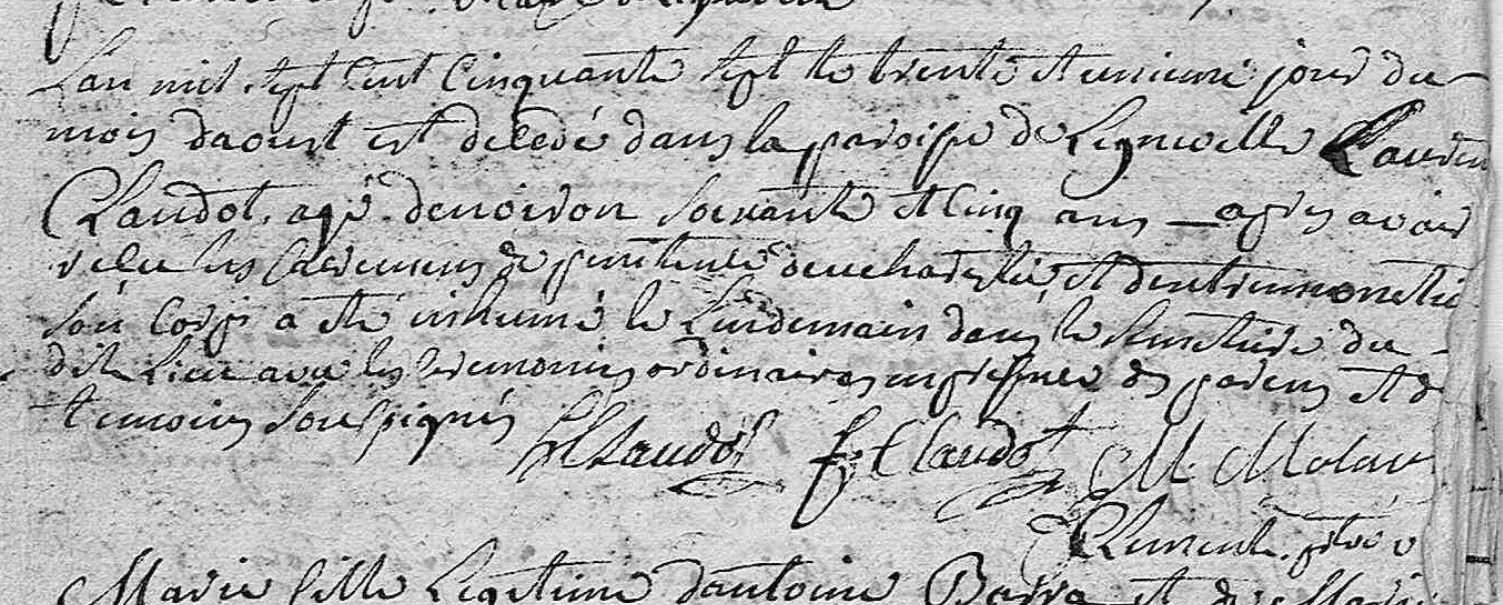 Lan mil sept Cent Cinquante sept le trente et unieme jour du
mois daoust est decedé dans la paroisse de Legneville Lauren
Claudot, agé denviron soixante et Cinq ans apres avoir
recu les sacremens de penitence deucharistie et dextremonctio
son Corps a eté inhumé le Lendemain dans le Cimetiere du
dit Lieu avec les ceremonies ordinaires en presence des parens et de
temoins soussignés
Claudot F Claudot M
Clement, ptre
Marie fille Legitime dantoine Barra et de Marie